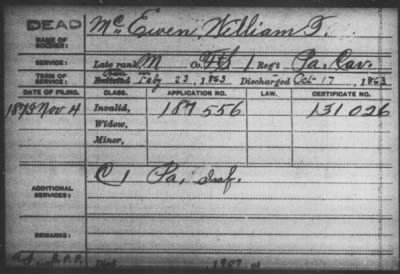 DEAD
NAME OF SOLDIER: Mc Ewen, William T.
SERVICE: Late rank, M Co. F&S 1 Reg't Pa. Cav.
TERM OF SERVICE: Enlisted Feby 23, 1863 Discharged Oct 17, 1863
DATE OF FILING. CLASS. APPLICATION NO. LAW. CERTIFICATE NO.
Nov 4 Invalid, 187556 131026
Widow,
Minor,
ADDITIONAL SERVICES: C 1 Pa. Inf.
REMARKS: